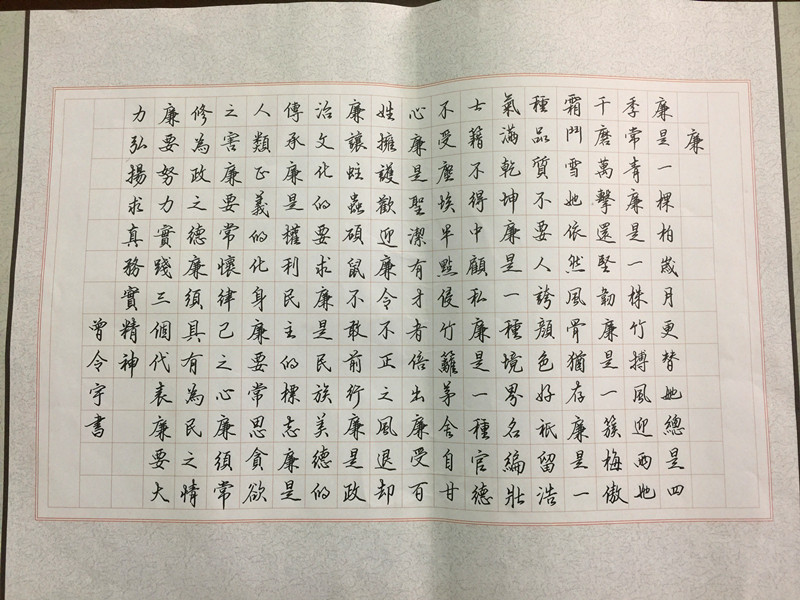 廉
廉是一棵柏歲月更替她總是四
季常青廉是一株竹搏風迎雨她
千磨萬擊還堅韌廉是一簇梅傲
霜鬥雪她依然風骨猶存廉是一
種品質不要人誇顏色好祇留浩
氣滿乾坤廉是一種境界名編壯
士籍不得中顧私廉是一種官德
不受塵埃半點侵竹籬茅舍自甘
心廉是聖潔有才者倍出廉受百
姓擁護歡迎廉令不正之風退却
廉讓蛀蟲碩鼠不敢前行廉是政
治文化的要求廉是民族美德的
傳承廉是權利民主的標志廉是
人類正義的化身廉要常思貪欲
之害廉要常懷律己之心廉須常
修為政之德廉須具有為民之情
廉要努力實踐三個代表廉要大
力弘揚求真務實精神
曾令宇書